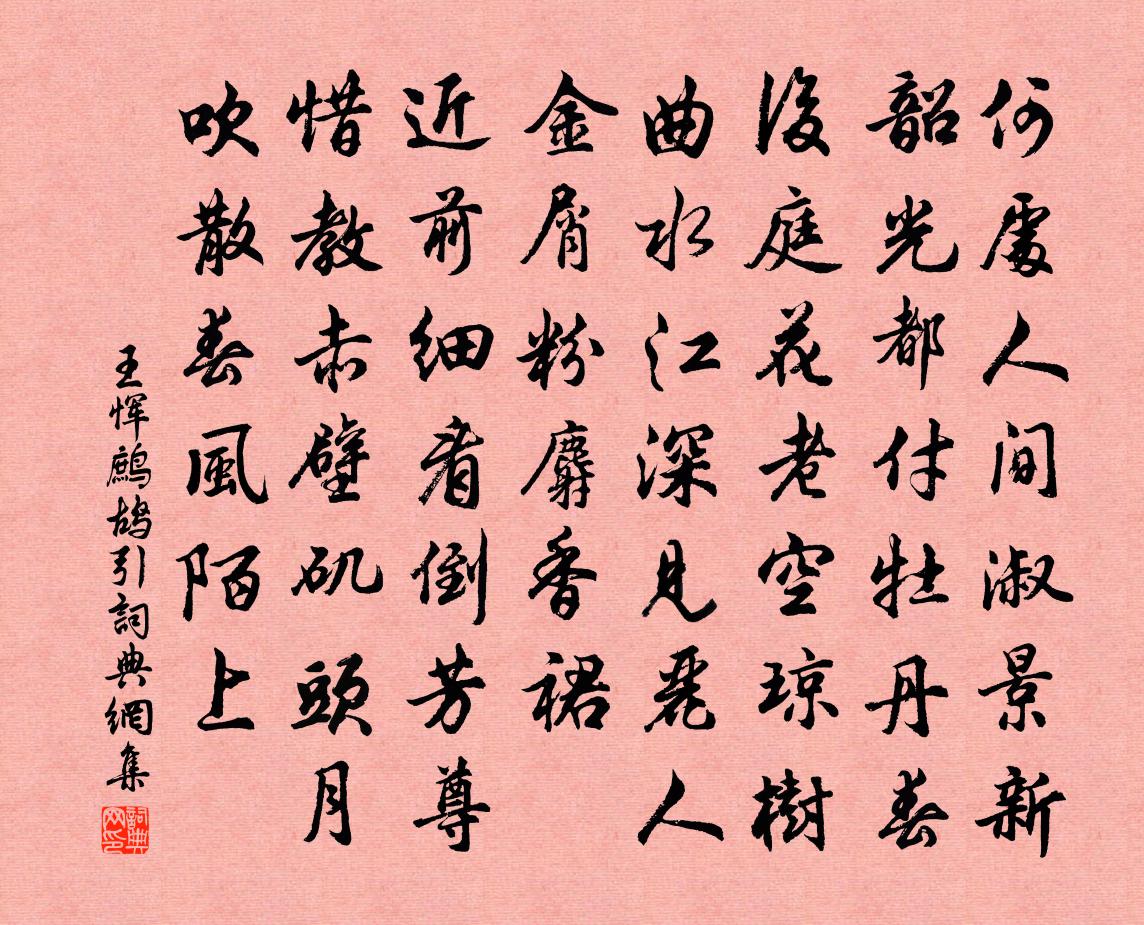 何處人間淑景新
韶光都付牡丹春
後庭花老空瓊樹
曲水江深見麗人
金屑粉麝香裙
近前細看倒芳尊
惜教赤壁矶頭月
吹散春風陌上
王惲鷓鴣引詞典網集
詞典网印